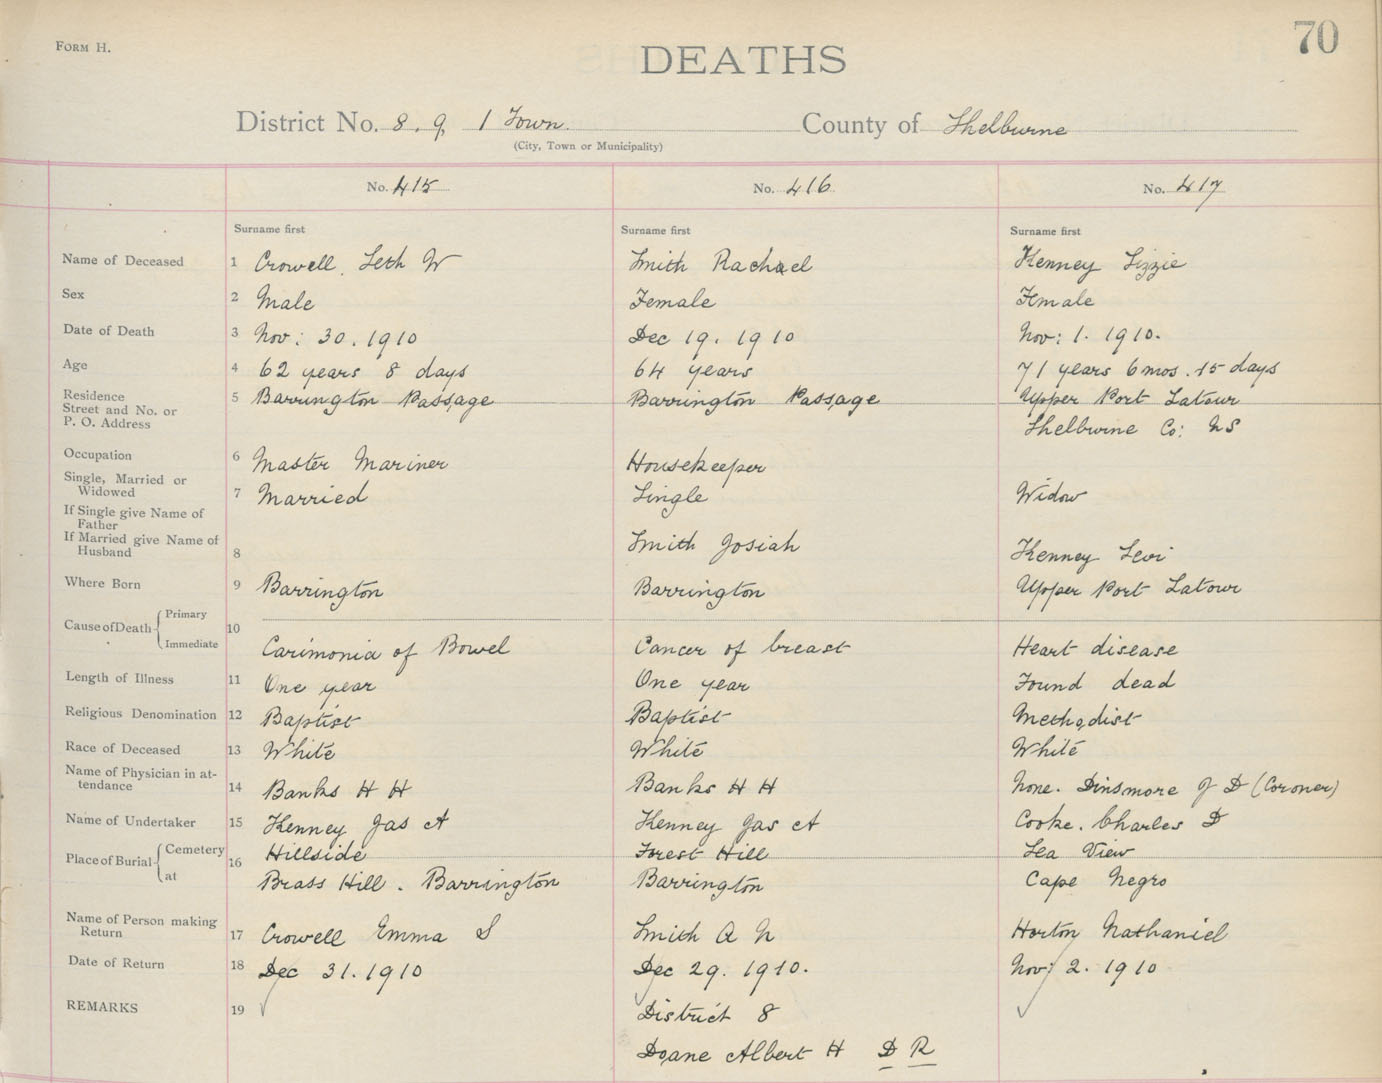 70
FORM H.
DEATHS
District No. 8. 9 1 Town. County of Shelburne
(City, Town or Municipality)
No. 415 No. 416 No. 417
Surname first Surname first Surname first
Name of Deceased 1 Crowell, Seth W Smith Rachael Kenney Lizzie
Sex 2 Male Female Female
Date of Death 3 Nov: 30. 1910 Dec 19. 1910 Nov: 1. 1910.
Age 4 62 years 8 days 64 years 71 years 6 mos. 15 days
Residence
Street and No. or
P. O. Address 5 Barrington Passage Barrington Passage Upper Port Latour
Shelburne Co: NS
Occupation 6 Master Mariner Housekeeper
Single, Married or
Widowed 7 Married Single Widow
If Single give Name of
Father
If Married give Name of
Husband 8 Smith Josiah Kenney Levi
Where Born 9 Barrington Barrington Upper Port Latour
Cause of Death Primary
Immediate 10 Carimonia of Bowel Cancer of breast Heart disease
Length of Illness 11 One year One year Found dead
Religious Denomination 12 Baptist Baptist Methodist
Race of Deceased 13 White White White
Name of Physician in at-
tendance 14 Banks H H Banks H H None. Dinsmore J D (Coroner)
Name of Undertaker 15 Kenney Jas A Kenney Jas A Cooke. Charles D
Place of Burial Cemetery 16 Hillside Forest Hill Sea View
at Brass Hill. Barrington Barrington Cape Negro
Name of Person making
Return 17 Crowell Emma S Smith A N Horton Nathaniel
Date of Return 18 Dec 31. 1910 Dec 29. 1910. Nov; 2. 1910
REMARKS 19 District 8
Doane Albert H D R